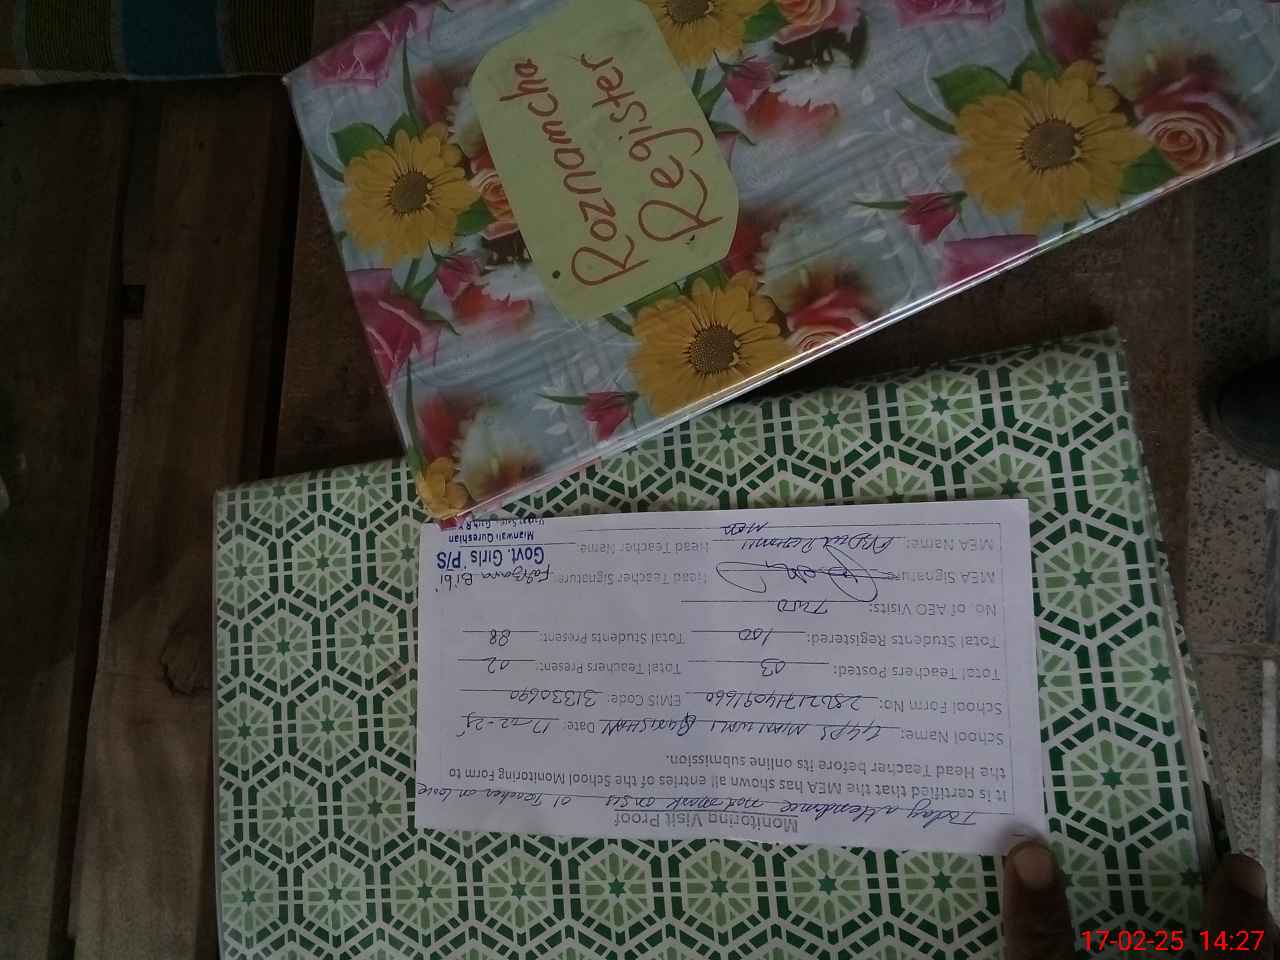 Roznamcha
Register
Monitoring Visit Proof
Today attendence not mark on sis 01 Teacher on leave
It is certified that the MEA has shown all entries of the School Monitoring Form to
the Head Teacher before its online submission.
School Name: GGPS MIANWALI QURISHAN Date: 17-02-25
School Form No: EMIS Code: 31330690
Total Teachers Posted: 03 Total Teachers Present: 02
Total Students Registered: 100 Total Students Present: 88
No. of AEO Visits: Two
MEA Signature: Head Teacher Signature:
MEA Name: Abdul Rehman Head Teacher Name:
MEA
Bibi
Govt. Girls P/S
Mianwali Qureshian
17-02-25 14:27